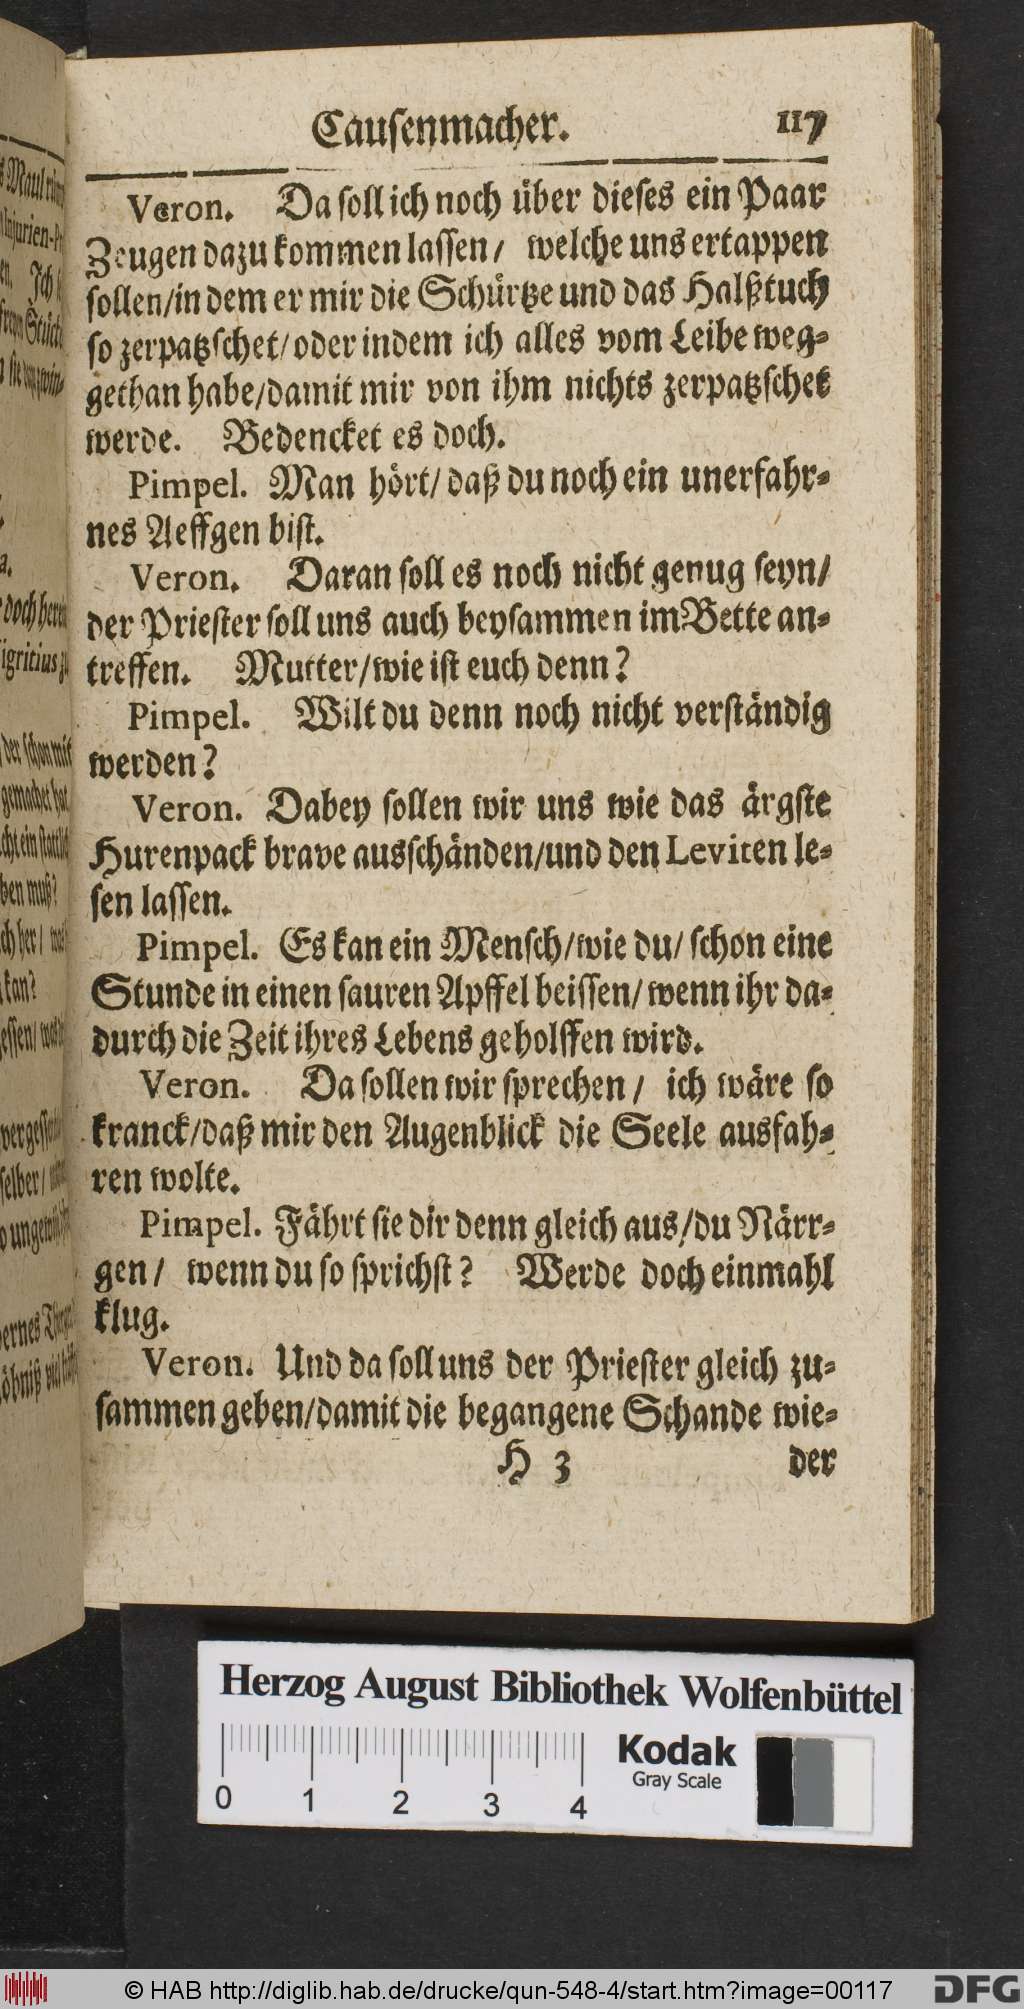 Causenmacher. 117
Veron. Da soll ich noch über dieses ein Paar
Zeugen dazu kommen lassen / welche uns ertappen
sollen/in dem er mir die Schürtze und das Halßtuch
so zerpatzschet/oder indem ich alles vom Leibe weg-
gethan habe/damit mir von ihm nichts zerpatzschet
werde. Bedencket es doch.
Pimpel. Man hört/ daß du noch ein unerfahr-
nes Aeffgen bist.
Veron. Daran soll es noch nicht genug seyn/
der Priester soll uns auch beysammen im Bette an-
treffen. Mutter/wie ist euch denn?
Pimpel. Wilt du denn noch nicht verständig
werden?
Veron. Dabey sollen wir uns wie das ärgste
Hurenpack brave ausschänden/und den Leviten le-
sen lassen.
Pimpel. Es kan ein Mensch/wie du/ schon eine
Stunde in einen sauren Apffel beissen/ wenn ihr da-
durch die Zeit ihres Lebens geholffen wird.
Veron. Da sollen wir sprechen / ich wäre so
kranck/daß mir den Augenblick die Seele ausfah-
ren wolte.
Pimpel. Fährt sie dir denn gleich aus/du Närr-
gen / wenn du so sprichst? Werde doch einmahl
klug.
Veron. Und da soll uns der Priester gleich zu-
sammen geben/damit die begangene Schande wie-
H 3 der
Herzog August Bibliothek Wolfenbüttel
Kodak
Gray Scale
0 1 2 3 4
© HAB http://diglib.hab.de/drucke/qun-548-4/start.htm?image=00117
DFG